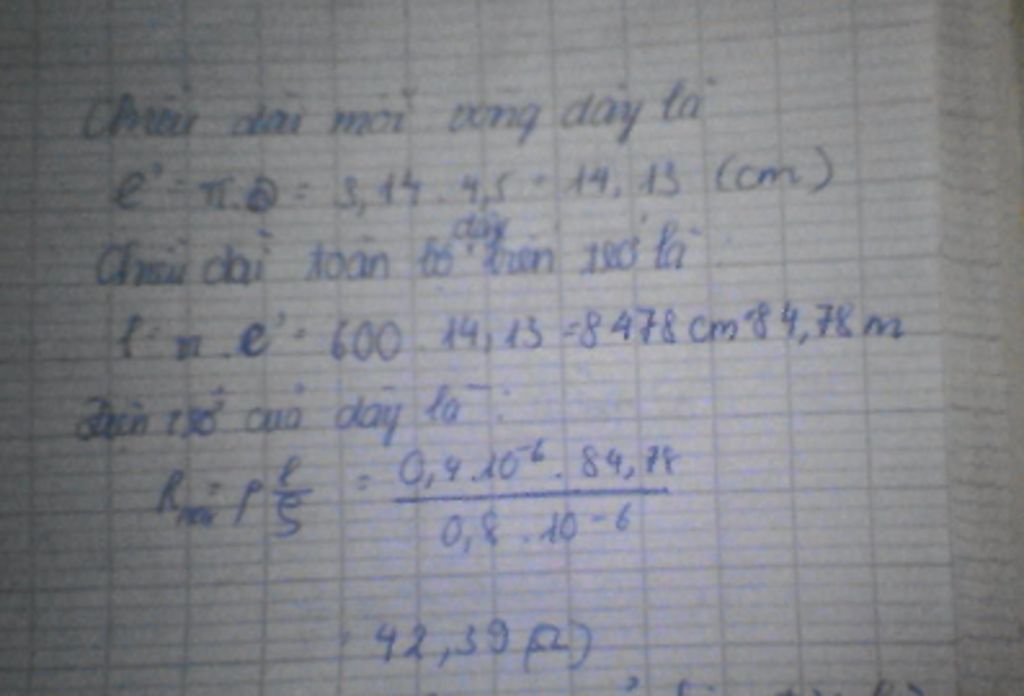 Chiều dài mỗi vòng dây là
l' = π.D = 3,14 . 4,5 = 14,13 (cm)
Chiều dài toàn bộ dây trên là :
l = n . l' = 600 . 14,13 = 8478 cm = 84,78 m
Điện trở của dây là :
R = ρ l/S = 0,4.10⁻⁶ . 84,78 / 0,8 . 10⁻⁶
42,39 (Ω)